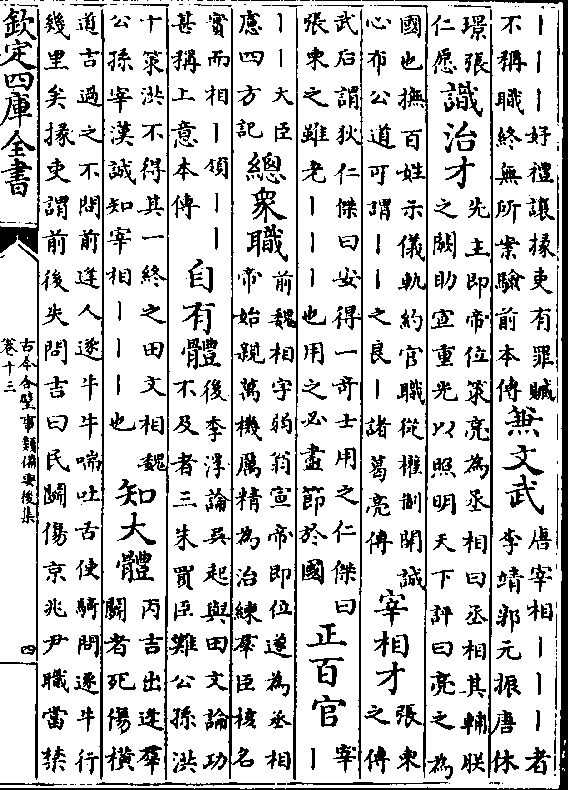 ｜｜｜｜好禮讓掾吏有罪贓不稱職終無所案驗前本傳 兼文武 唐宰相｜｜｜｜者李靖郭元振唐休
璟張仁愿 識治才 先主即帝位策亮為丞相曰丞相其輔朕之闕助宣重光以照明天下評曰亮之為
國也撫百姓示儀軌約官職從權制開誠心布公道可謂｜｜之良｜諸葛亮傳 宰相才 張柬之傳
武后謂狄仁傑曰安得一奇士用之仁傑曰張柬之雖老｜｜｜也用之必盡節於國 正百官 宰｜
｜｜大臣慮四方記 總衆職 前魏相字弱翁宣帝即位遂為丞相帝始親萬機厲精為治練羣臣核名
實而相｜領｜｜甚稱上意本傳 自有體 後李淳論吳起與田文論功不及者三朱買臣難公孫洪
十策洪不得其一終之田文相魏公孫宰漢誠知宰相｜｜｜也 知大體 丙吉出逢羣鬬者死傷橫
道吉過之不問前逢人逐牛牛喘吐舌使騎問逐牛行幾里矣掾吏謂前後失問吉曰民鬬傷京兆尹職當禁
欽定四庫全書
古今合璧事類備要後集
卷十三
四